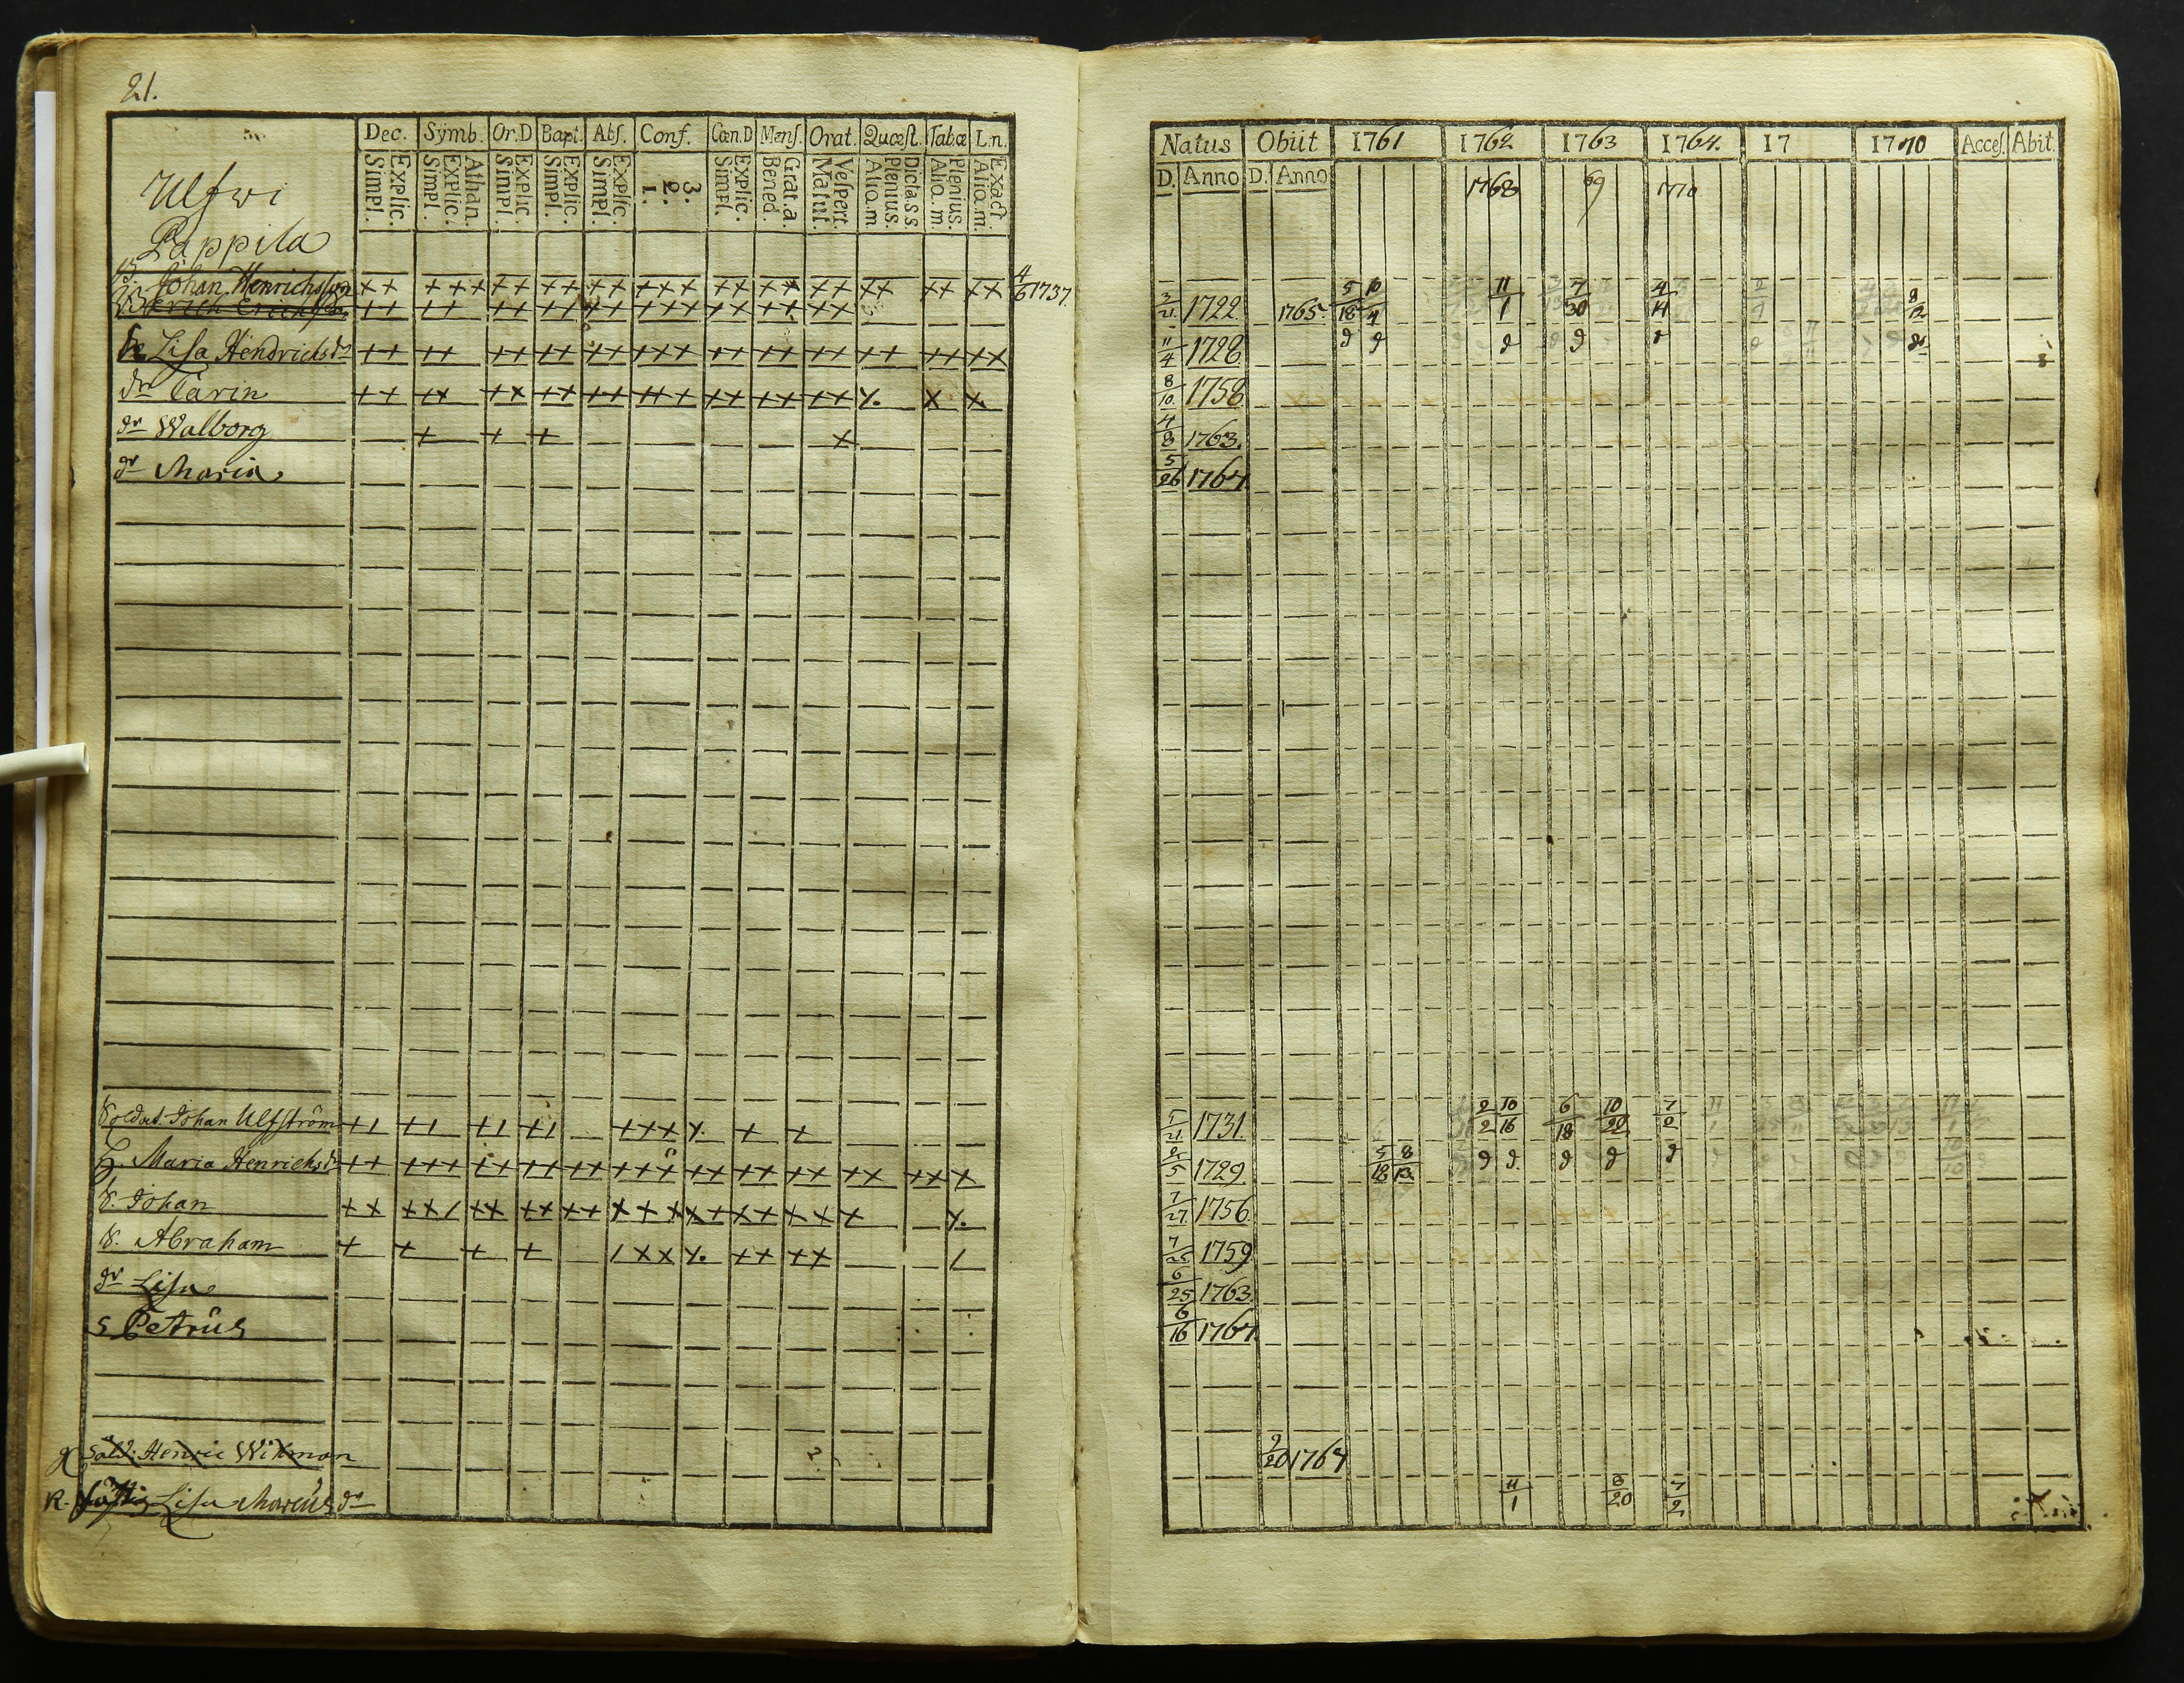 21.
Dec. Symb. Or.D Bapt. Abs. Conf. Cœn.D Mens. Orat. Quæst. Tab.œ L.n.
Explic. Simpl. Athan. Explic. Simpl. Explic Simpl. Explic. Simpl. Explic. Simpl. 3. 2. 1. Explic. Simpl. Grat.a. Bened. Vespert. Matut. Dicta s s Plenius. Aliq.m Plenius. Aliq.m Exact. Aliq.m
Ulfwi
Pappila
B. Johan Henrichsson ++ +++ ++ ++ ++ +++ ++ ++ ++ ++ ++ ++ 4/6 1737.
Erich Erichss. ++ ++ ++ ++ ++ +++ ++ ++ ++
Lisa Hendrichs dr ++ ++ ++ ++ ++ +++ ++ ++ ++ ++ ++ ++
dr Carin ++ ++ ++ ++ ++ +++ ++ ++ ++ x x
dr Walborg + + + x
dr Maria
Soldat Johan Ulfström
H. Maria Henrichs dr ++ +++ ++ ++ ++ +++ ++ ++ ++ ++ ++ +
S. Johan
S. Abraham
dr Lisa
S Petrus
Sold: Henric Wikman
Lisa Marcus dr
Natus Obiit 1761 1762 1763 1764. 17 1770 Acces. Abit.
D. Anno D. Anno 1768 69 1770
3/21 1722 1765 5/18 10/4 11/1 7/30 4/14 8/12
11/4 1728
8/10 1758
4/8 1763.
5/26 1767
5/21 1731. 2/2 10/16 6/18 10/22 7/2
1729 5/18 8/13
7/27 1756.
7/25 1759
6/25 1763.
6/16 1767.
2/20 1767
11/1 8/20 7/2